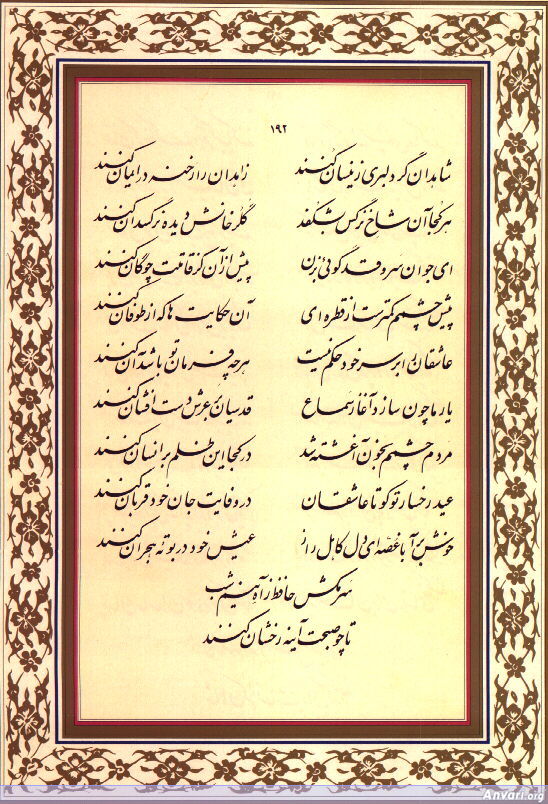 ۱۹۲
شاهدان گر دلبری زینسان کنند زاهدان را رخنه در ایمان کنند
هر کجا آن شاخ نرگس بشکفد گلرخانش دیده نرگسدان کنند
ای جوان سرو قد گوئی بزن پیش از آن کز قامتت چوگان کنند
پیش چشمم کمترست از قطره ای آن حکایت ها که از طوفان کنند
عاشقان را بر سر خود حکم نیست هر چه فرمان تو باشد آن کنند
یار ما چون سازد آغاز سماع قدسیان بر عرش دست افشان کنند
مردم چشمم بخون آغشته شد در کجا این ظلم بر انسان کنند
عید رخسار تو کو تا عاشقان در وفایت جان خود قربان کنند
خوش برآ با غصه ای دل کاهل راز عیش خود در بوته هجران کنند
سر مکش حافظ ز آه نیم شب
تا چو صبحت آینه رخشان کنند
Anvari.org